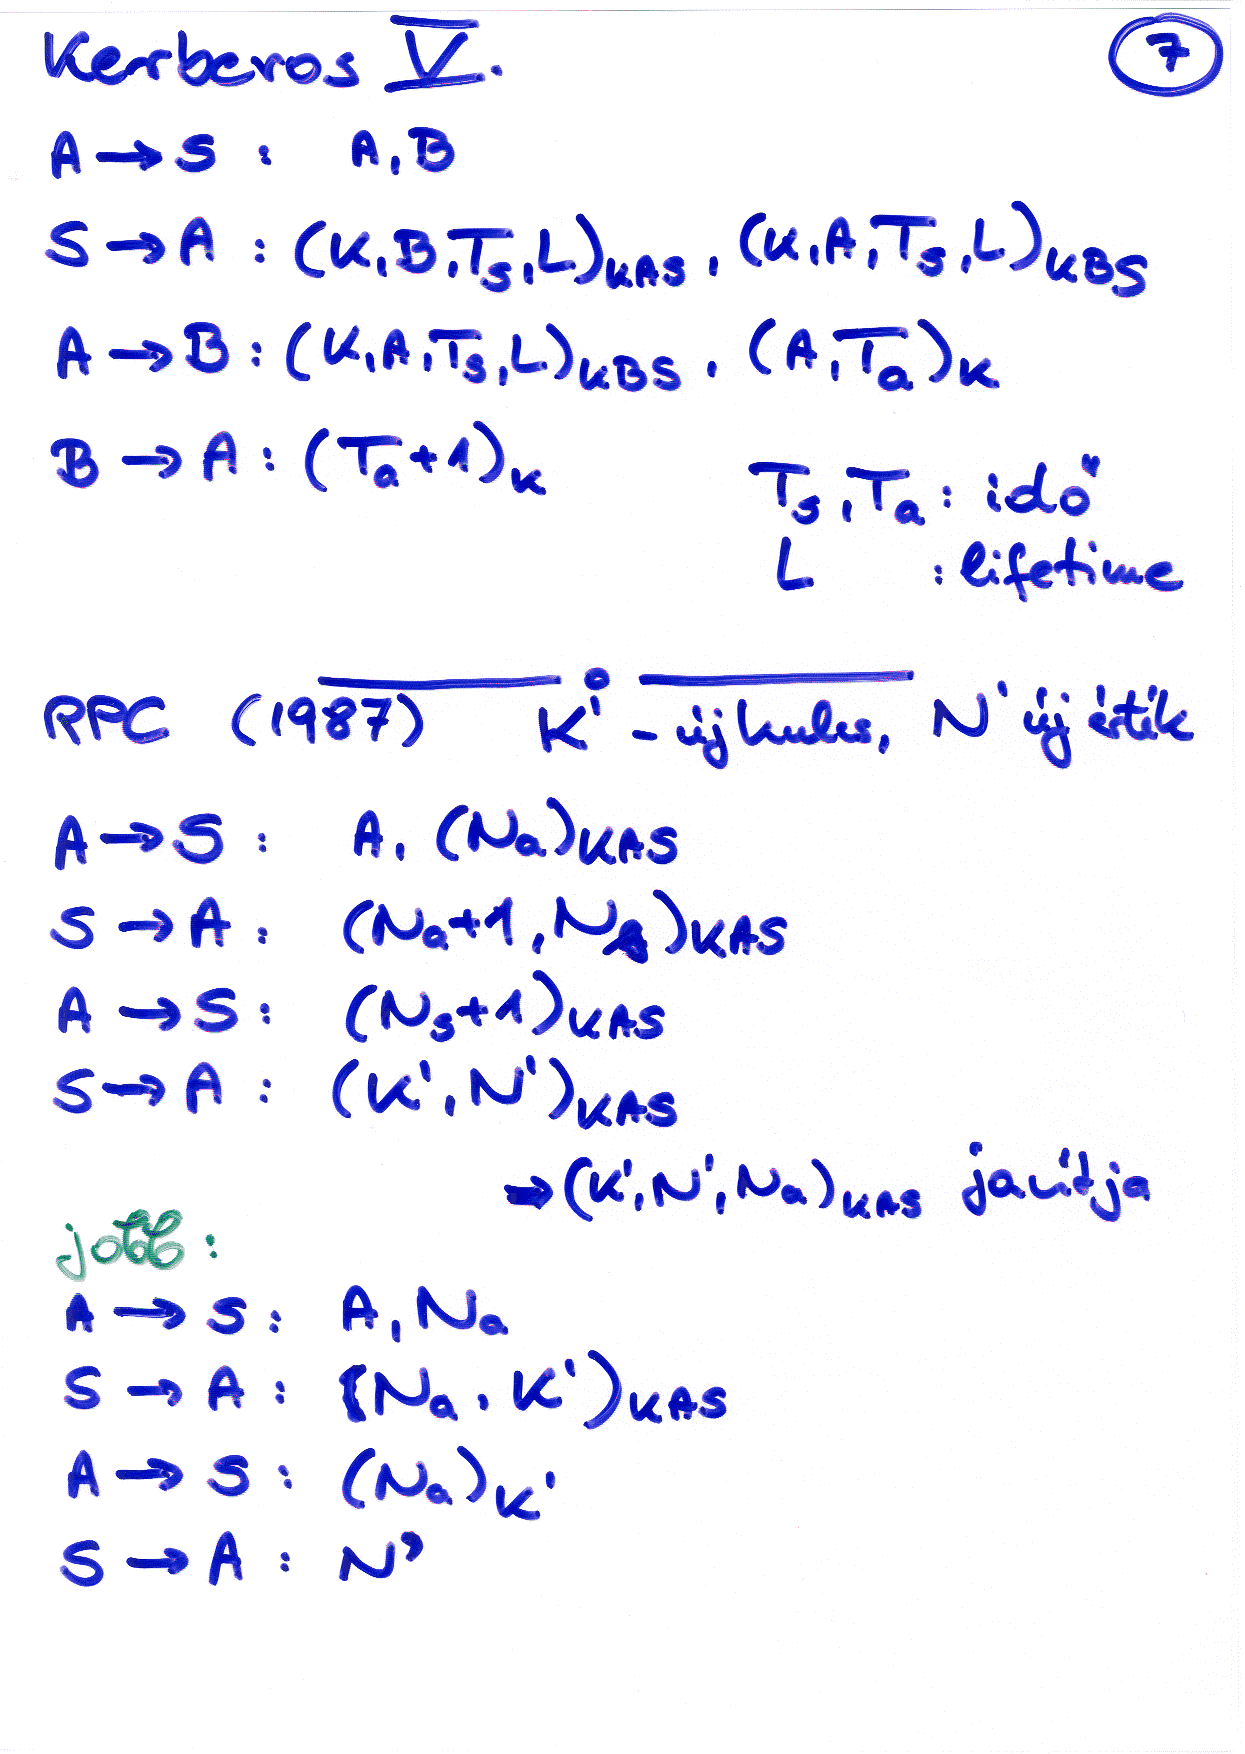 Kerberos V.
7
A → S : A, B
S → A : (K, B, Ts, L)KAS, (K, A, Ts, L)KBS
A → B : (K, A, Ts, L)KBS, (A, Ta)K
B → A : (Ta+1)K
Ts, Ta : idő
L : lifetime
RPC (1987) K' - új kulcs, N' új érték
A → S : A, (Na)KAS
S → A : (Na+1, Ns)KAS
A → S : (Ns+1)KAS
S → A : (K', N')KAS
⇒ (K', N', Na)KAS javítja
jobb :
A → S : A, Na
S → A : (Na, K')KAS
A → S : (Na)K'
S → A : N'